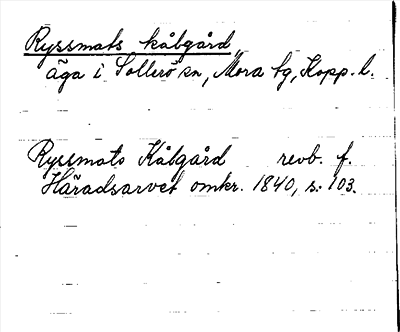 Ryssmats kålgård,
äga i Sollerö sn, Mora tg, Kopp. l.
Ryssmats Kålgård revb. f.
Häradsarvet omkr. 1840, s. 103.